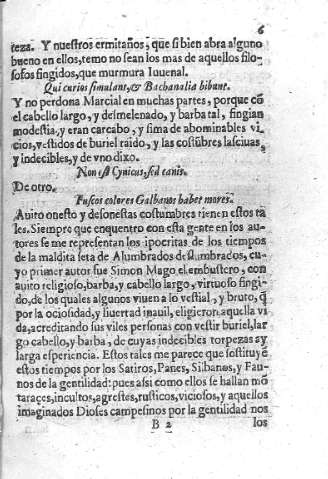 6
teza. Y nuestros ermitaños, que si bien abra alguno
bueno en ellos, temo no sean los mas de aquellos filo-
sofos fingidos, que murmura Iuuenal.
Qui curios simulant, & Bachanalia bibunt.
Y no perdona Marcial en muchas partes, porque cō
el cabello largo, y desmelenado, y barba tal, fingian
modestia, y eran carcabo, y sima de abominables vi
cios, vestidos de buriel raido, y las costūbres lasciuas,
y indecibles, y de vno dixo.
Non est Cynicus, sed canis.
De otro.
Fuscos colores Galbanos habet mores.
Auito onesto y desonestas costumbres tienen estos ta
les. Siempre que enquentro con esta gente en los au-
tores se me representan los ipocritas de los tiempos
de la maldita seta de Alumbrados deslumbrados, cu-
yo primer autor fue Simon Mago el embustero, con
auito religioso, barba, y cabello largo, virtuoso fingi-
do, de los quales algunos viuen a lo vestial, y bruto, q̄
por la ociosidad, y liuertad inauil, eligieron aquella vi
da, acreditando sus viles personas con vestir buriel, lar
go cabello, y barba, de cuyas indecibles torpezas ay
larga esperiencia. Estos tales me parece que sostituyē
estos tiempos por los Satiros, Panes, Silbanos, y Fau-
nos de la gentilidad: pues assi como ellos se hallan mō
taraçes, incultos, agrestes, rusticos, viciosos, y aquellos
imaginados Dioses campesinos por la gentilidad nos
B 2 los